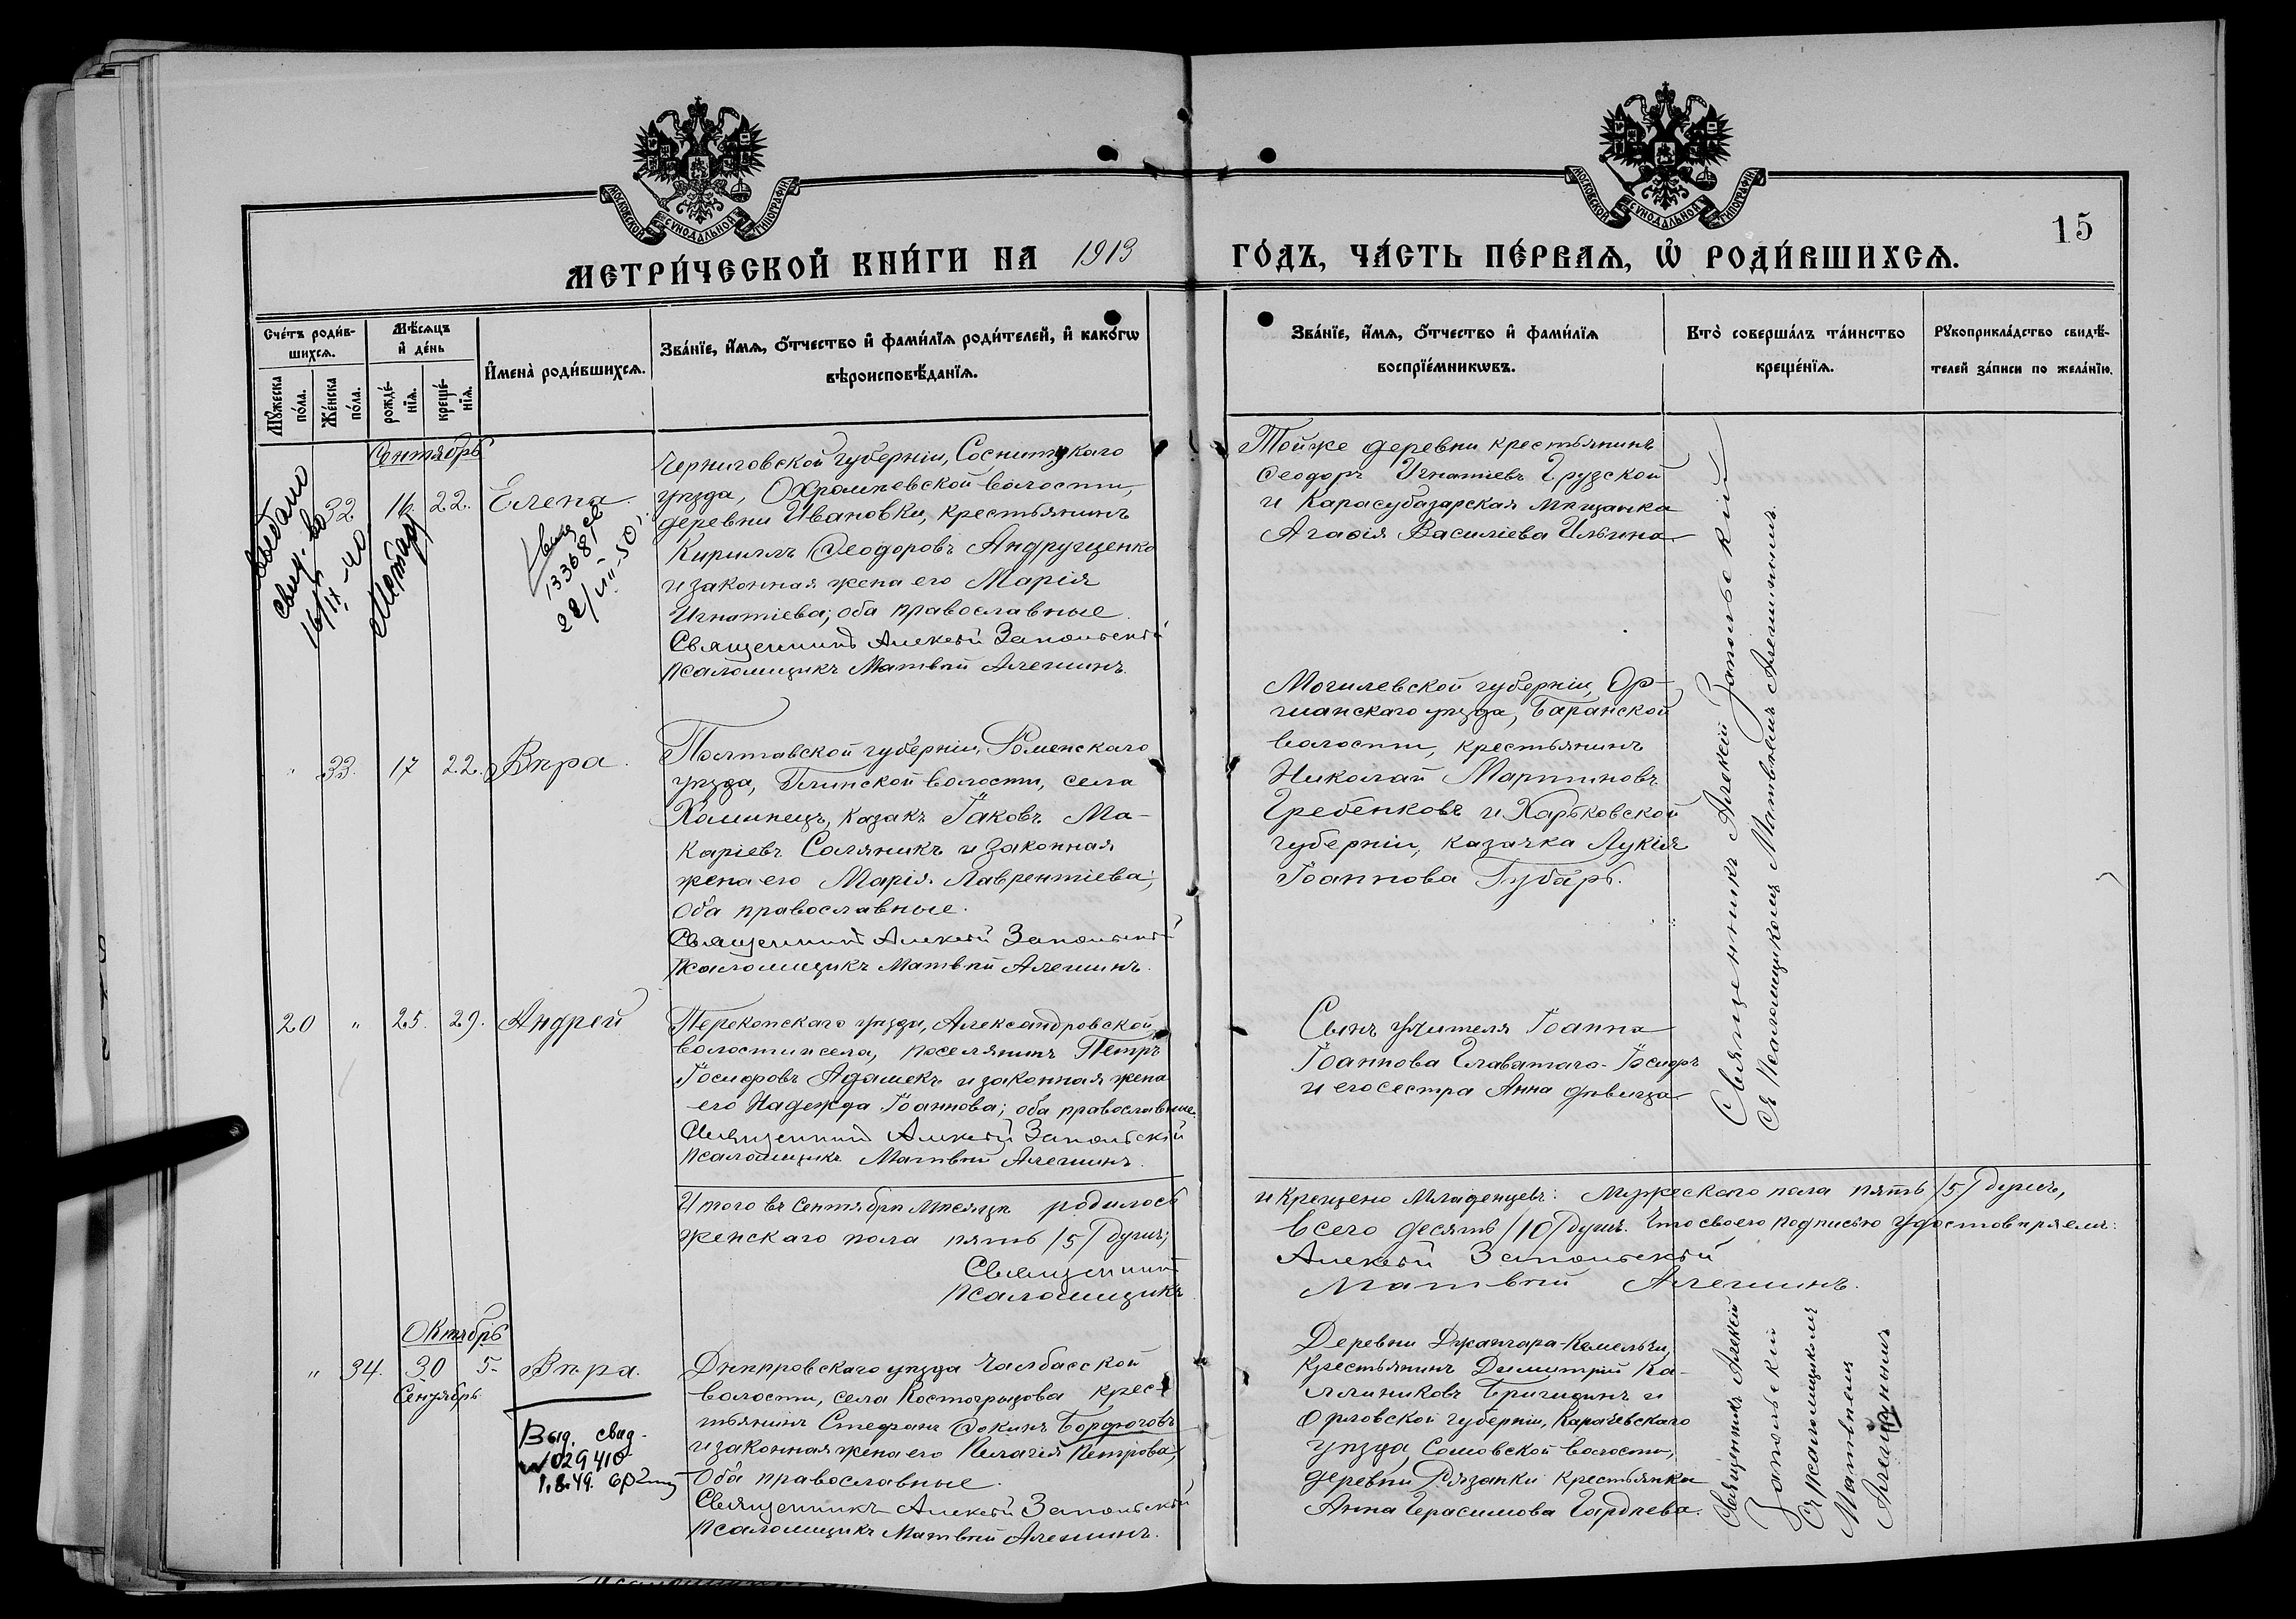 МОСКОВСКОЙ СУНОДАЛЬНОЙ ТИПОГРАФІИ
МОСКОВСКОЙ СУНОДАЛЬНОЙ ТИПОГРАФІИ
15
МЕТРИ́ЧЕСКОЙ КНИ́ГИ НА 1913 ГО́ДЪ, ЧА́СТЬ ПЕ́РВАѦ, Ѡ҆ РОДИ́ВШИХСѦ.
Счéтъ роди́в-
шихсѧ.
Мꙋ́жеска
по́ла.
Же́нска
по́ла.
Мѣ́сѧцъ
и҆ де́нь
рожде́-
нїѧ.
креще́-
нїѧ.
И҆мена̀ роди́вшихсѧ.
Зва́нїе, и҆́мѧ, ѻ҆́тчество и҆ фами́лїѧ роди́телей, и҆ како́гѡ
вѣроисповѣ́данїѧ.
Зва́нїе, и҆́мѧ, ѻ҆́тчество и҆ фами́лїѧ
воспрїе́мникѡвъ.
Кто̀ соверша́лъ та́инство
креще́нїѧ.
Рꙋкоприкла́дство свидѣ́-
телей за́писи по жела́нїю.
Сентябрь
32 16. 22. Елена
свид-во
16/IX-40
133681
22/VII-50
Черниговской губерніи, Сосницкаго
уѣзда, Охрамѣевской волости,
деревни Ивановки, крестьянинъ
Кириллъ Ѳеодоровъ Андрущенко
и законная жена его Марія
Игнатіева; оба православные
Священникъ Алексѣй Запольскій
псаломщикъ Матвѣй Алешинъ.
Тойже деревни крестьянинъ
Ѳеодоръ Игнатіевъ Грузской
и Карасубазарская мѣщанка
Агаѳія Василіева Ильина
" 33. 17 22. Вѣра.
Полтавской губерніи, Роменскаго
уѣзда, Глинской волости, села
Хоминецъ, казакъ Іаковъ Ма-
каріевъ Соляникъ и законная
жена его Марія Лаврентіева;
Оба православные.
Священникъ Алексѣй Запольскій
псаломщикъ Матвѣй Алешинъ.
Могилевской губерніи, Ор-
шанскаго уѣзда, Баранской
волости, крестьянинъ
Николай Мартиновъ
Гребенковъ и Харьковской
губерніи, казачка Лукія
Іоаннова Губарь.
20 " 25. 29. Андрей
Перекопскаго уѣзда, Александровской
волости и села, поселянинъ Петръ
Іосифовъ Адамекъ и законная жена
его Надежда Іоаннова; оба православные.
Священникъ Алексѣй Запольскій
псаломщикъ Матвѣй Алешинъ.
Сынъ учителя Іоанна
Іоаннова Главатаго Іосифъ
и его сестра Анна дѣвица
Священникъ Алексѣй Запольскій
съ Псаломщикомъ Матвѣемъ Алешинымъ.
Итого въ Сентябрѣ мѣсяцѣ родилось
женскаго пола пять /5/ душъ;
Священникъ
псаломщикъ
и крещено младенцевъ: мужескаго пола пять /5/ душъ,
всего десять /10/ душъ. Что своею подписью удостовѣряемъ:
Алексѣй Запольскій
Матвѣй Алешинъ.
Октябрь
" 34. 30 5. Вѣра.
Сентябрь
Выд. свид-
029410
1.8.49.
Днѣпровскаго уѣзда Чалбасской
волости, села Костогрызова крес-
тьянинъ Стефанъ Ѳокинъ
и законная жена его Пелагія Петрова,
Оба православные.
Священникъ Алексѣй Запольскій
псаломщикъ Матвѣй Алешинъ.
Деревни Джангара-Кемельчи,
крестьянинъ Димитрій Ка-
линиковъ и
Орловской губерніи, Карачевскаго
уѣзда, Сомовской волости,
деревни Рязанки крестьянка
Анна Герасимова Гордѣева.
Священникъ Алексѣй
Запольскій
съ псаломщикомъ
Матвѣемъ
Алешинымъ